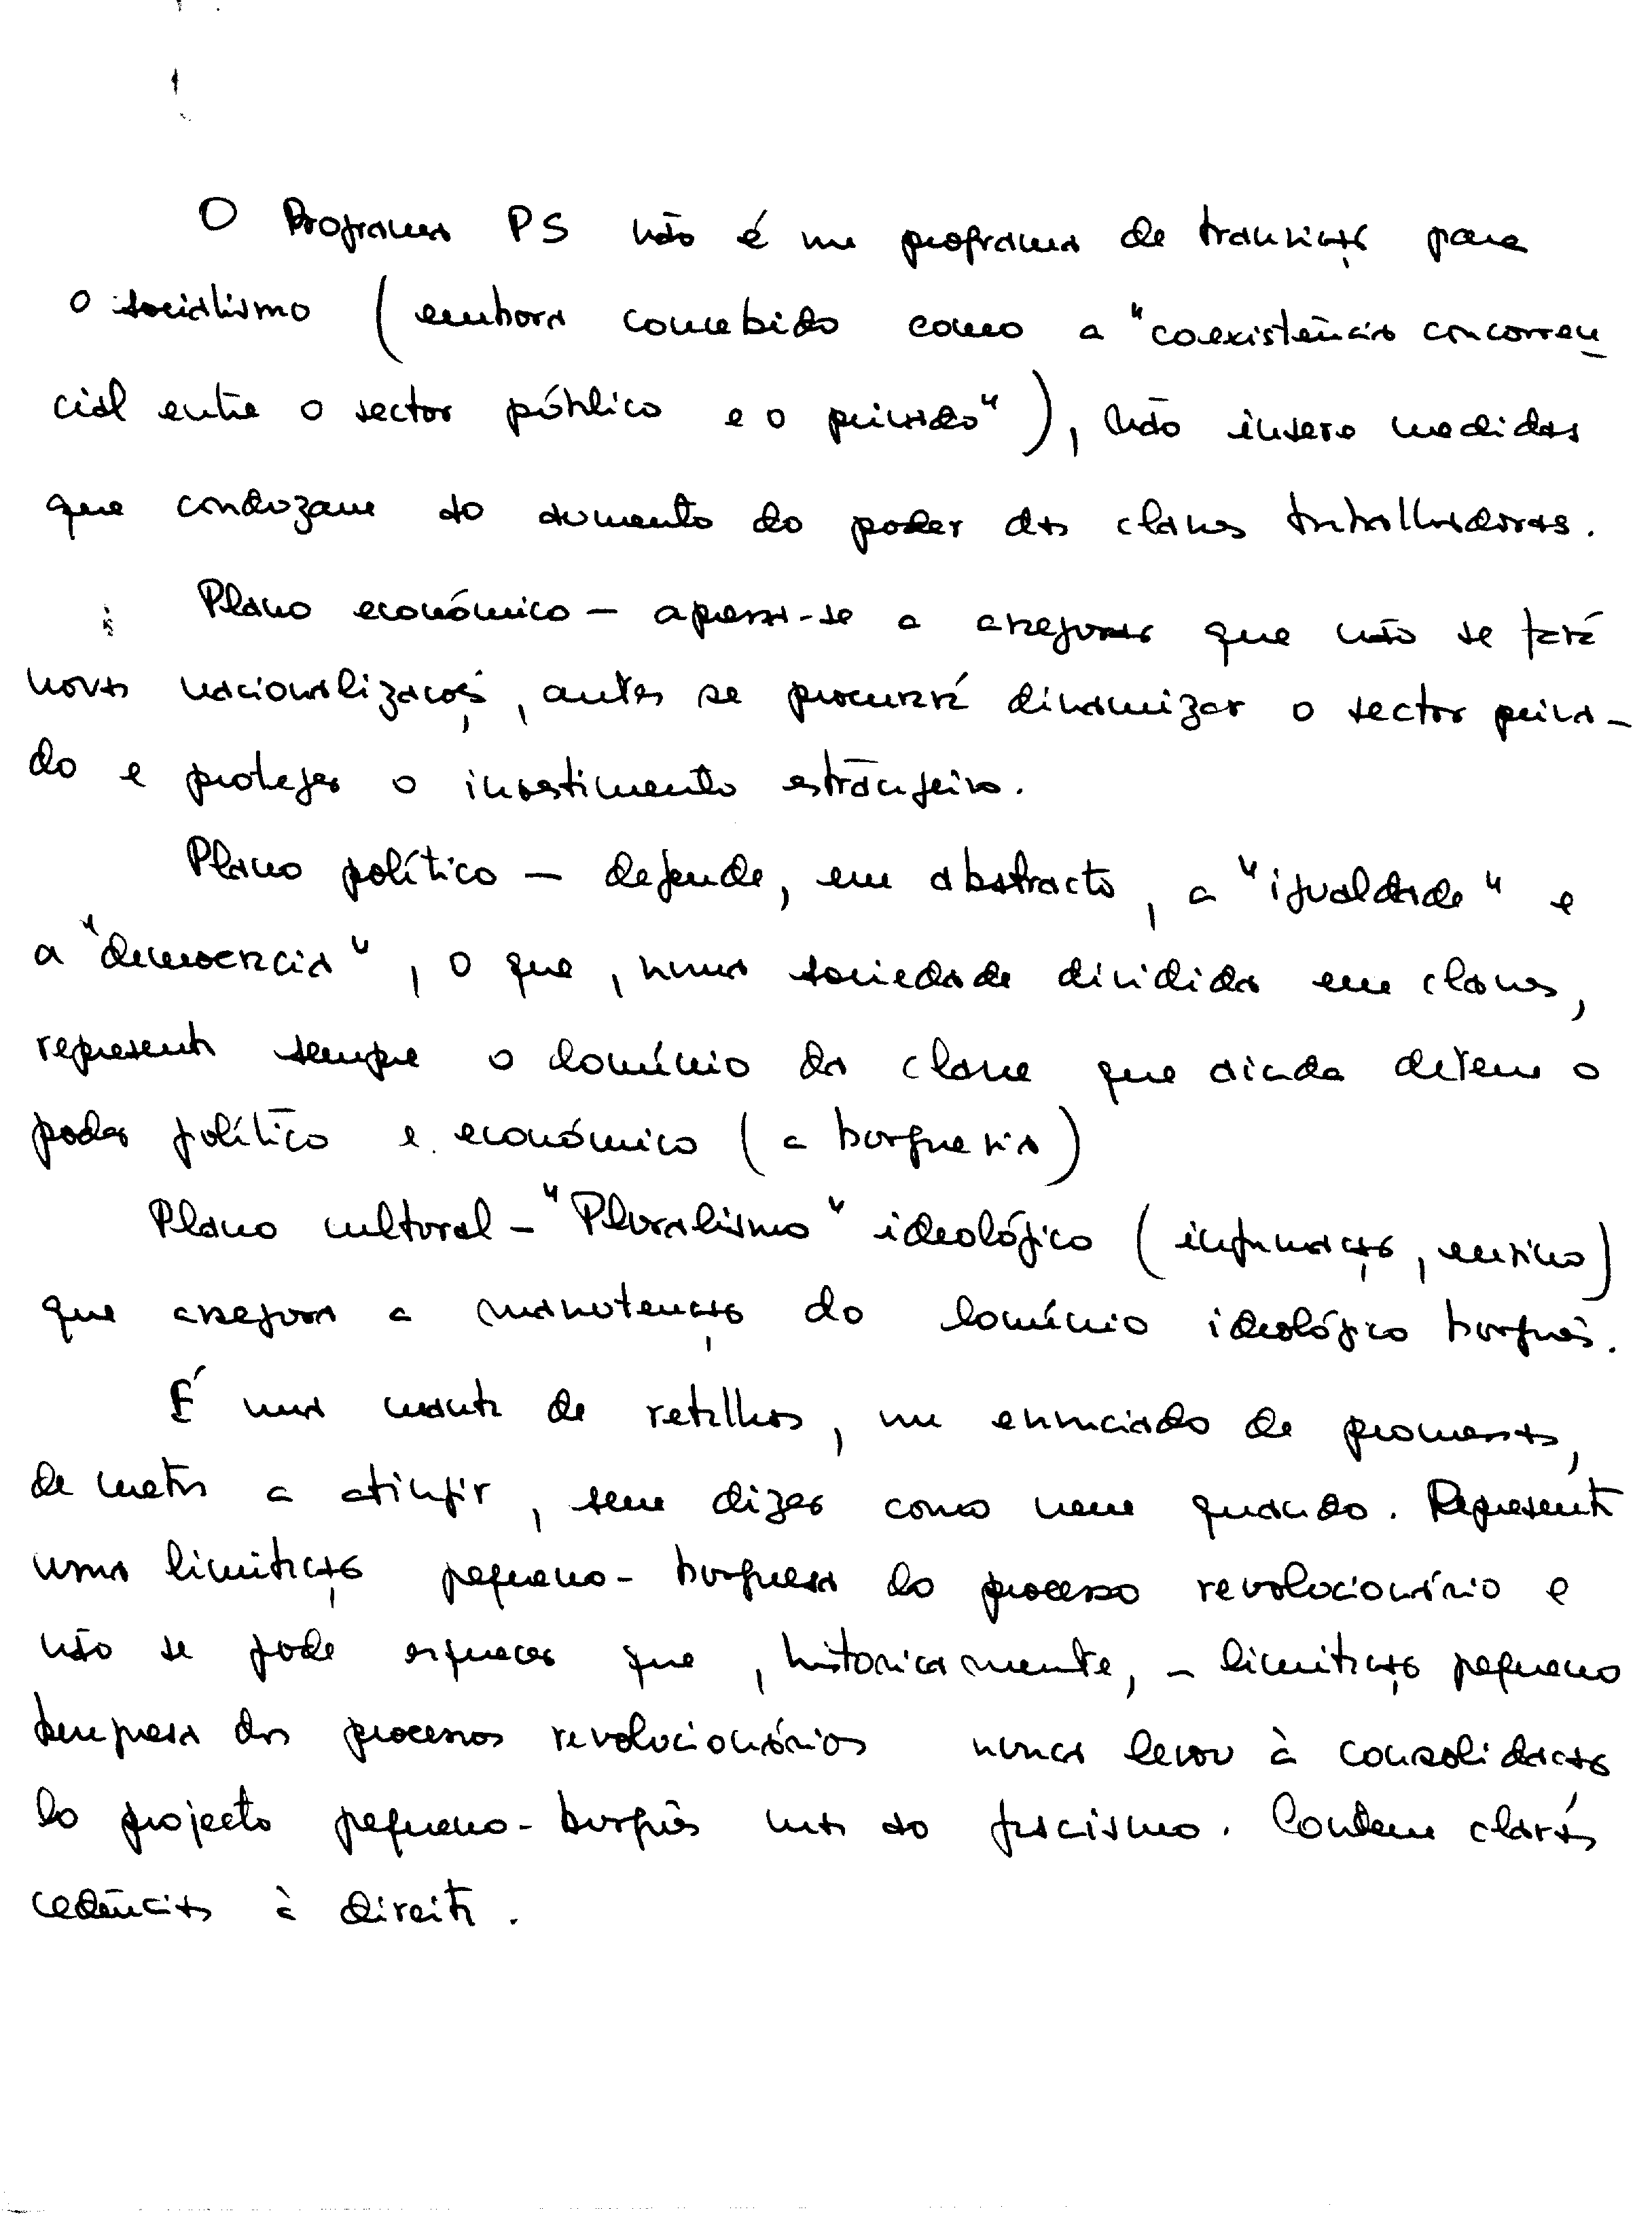 O Programa PS não é um programa de transição para
o socialismo (embora concebido como a "coexistência concorren
cial entre o sector público e o privado"), não insere medidas
que conduzam ao aumento do poder das classes trabalhadoras.
Plano económico — apressa-se a assegurar que não se fará
novas nacionalizações, antes se procurará dinamizar o sector priva-
do e proteger o investimento estrangeiro.
Plano político — defende, em abstracto, a "igualdade" e
a "democracia", o que, numa sociedade dividida em classes,
representa sempre o domínio da classe que ainda detem o
poder político e económico (a burguesia)
Plano cultural - "Pluralismo" ideológico (informação, ensino)
que assegura a manutenção do domínio ideológico burguês.
É uma manta de retalhos, um enunciado de promessas,
de metas a atingir, sem dizer como nem quando. Representa
uma limitação pequeno-burguesa do processo revolucionário e
não se pode esquecer que, historicamente, a limitação pequeno
burguesa dos processos revolucionários nunca levou à consolidação
do projecto pequeno-burguês mas ao fascismo. Contem claras
cedências à direita.